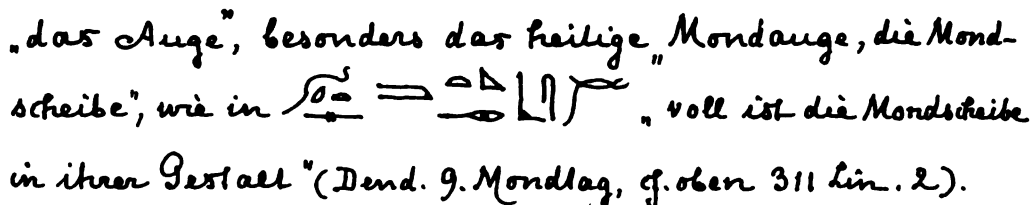 „das Auge", besonders das heilige „Mondauge, die Mond-
scheibe", wie in „voll ist die Mondscheibe
in ihrer Gestalt" (Dend. 9. Mondtag, cf. oben 311 Lin. 2).